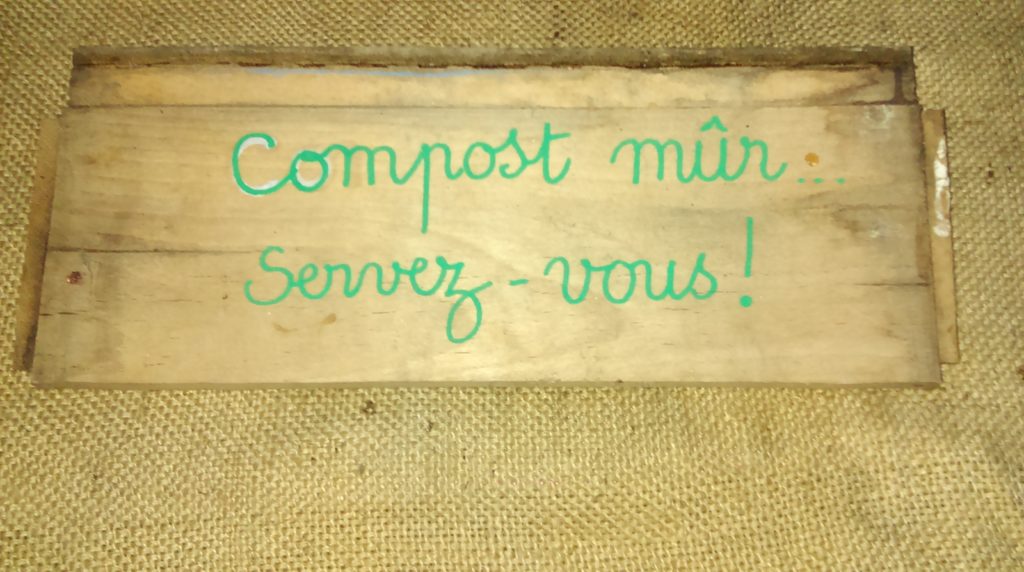 Compost mûr...
Servez-vous!